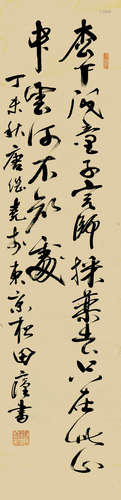 松下问童子言師採藥去只在此山
中雲深不知處
丁未秋唐继尧於東京松田
書